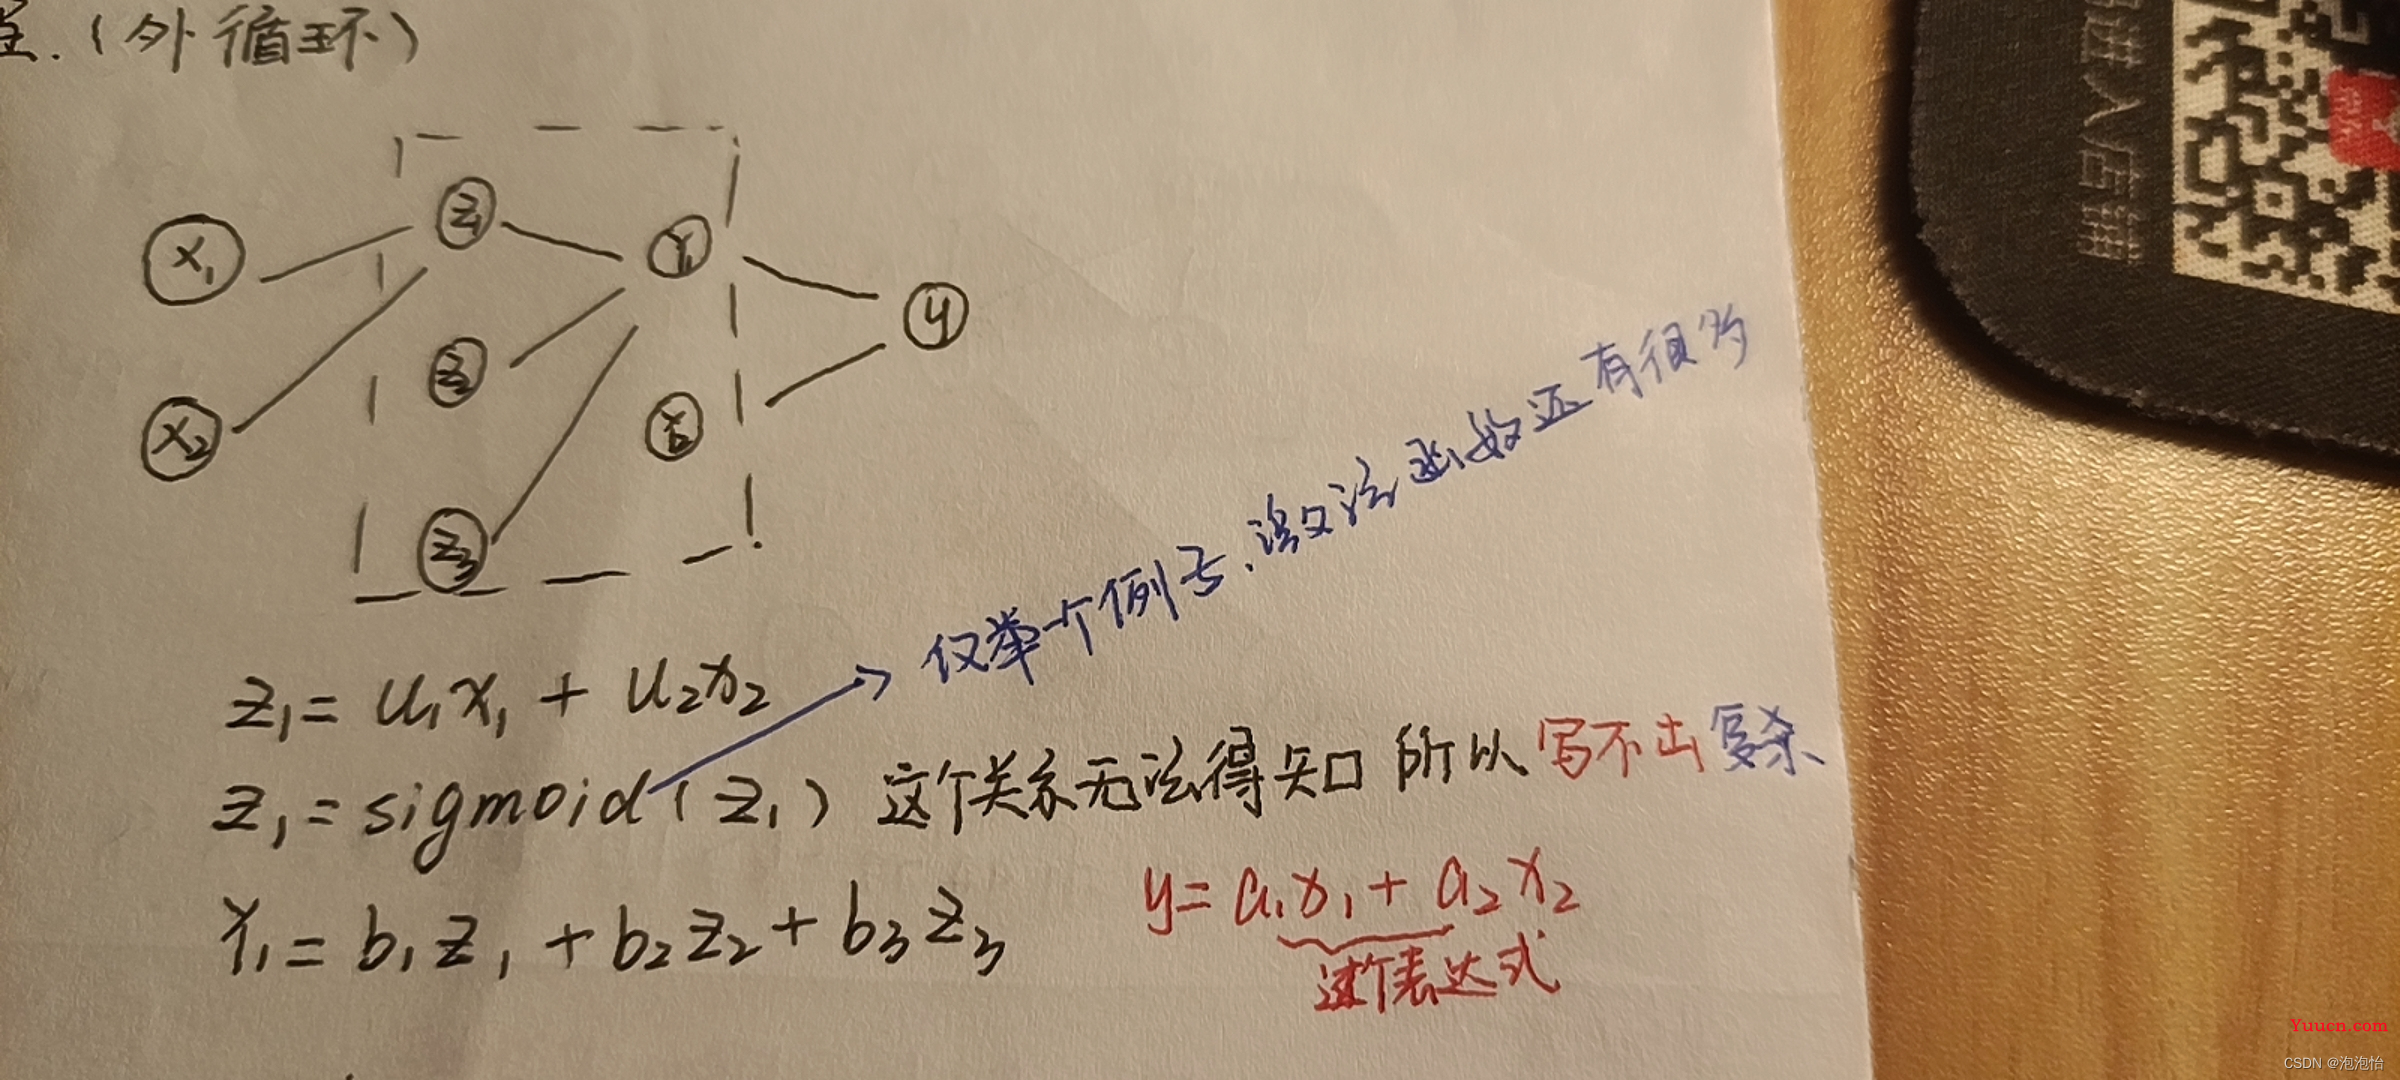 .(外循环)
x₁
z₁
Y₁
y
x₂
z₂
Y₂
z₃
z₁ = u₁x₁ + u₂x₂
仅举一个例子.激活函数还有很多
z₁ = sigmoid(z₁) 这个关系无法得知 所以写不出
Y₁ = b₁z₁ + b₂z₂ + b₃z₃
y = a₁x₁ + a₂x₂
这个表达式
Yuucn.com
CSDN @泡泡怡